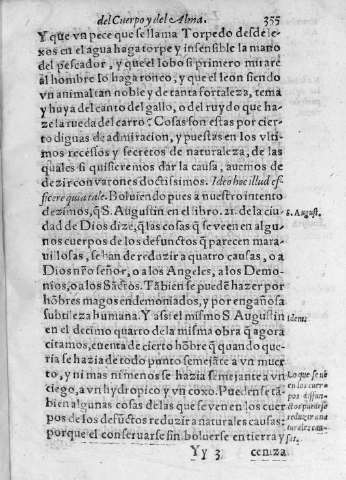 del Cuerpo y del Alma. 355
Y que vn pece que se llama Torpedo desde le-
xos en el agua haga torpe y insensible la mano
del pescador, y que el lobo si primero miraré
al hombre lo haga ronco, y que el leon siendo
vn animal tan noble y de tanta fortaleza, tema
y huya del canto del gallo, o del ruydo que ha-
ze la rueda del carro? Cosas son estas por cier-
to dignas de admiracion, y puestas en los vlti-
mos recessos y secretos de naturaleza, de las
quales si quisieremos dar la causa, auemos de
dezir con varones doctissimos. Ideo hoc illud ef-
ficere quia tale. Boluiendo pues a nuestro intento
dezimos, q̃ S. Augustin en el libro. 21. de la ciu-
dad de Dios dize, q̃ las cosas q̃ se veen en algu-
nos cuerpos de los defunctos q̃ parecen mara-
uillosas, se han de reduzir a quatro causas, o a
Dios nr̃o señor, o a los Angeles, a los Demo-
nios, o a los Sãctos. Tãbien se puedẽ hazer por
hõbres magos endemoniados, y por engañosa
subtileza humana. Y assi el mismo S. Augustin
en el decimo quarto de la misma obra q̃ agora
citamos, cuenta de cierto hõbre q̃ quando que-
ria se hazia de todo punto semejãte a vn muer-
to, y ni mas ni menos se hazia semejante a vn
ciego, a vn hydropico y vn coxo. Puedense tã-
bien algunas cosas de las que se ven en los cuer
pos de los defũctos reduzir a naturales causas:
porque el conseruarse sin boluerse en tierra y
Yy 3 ceniza
S. August.
Idem.
Lo que se ve
en los cuer-
pos difun-
ctos puede se
reduzir a na
turales cau-
sas.